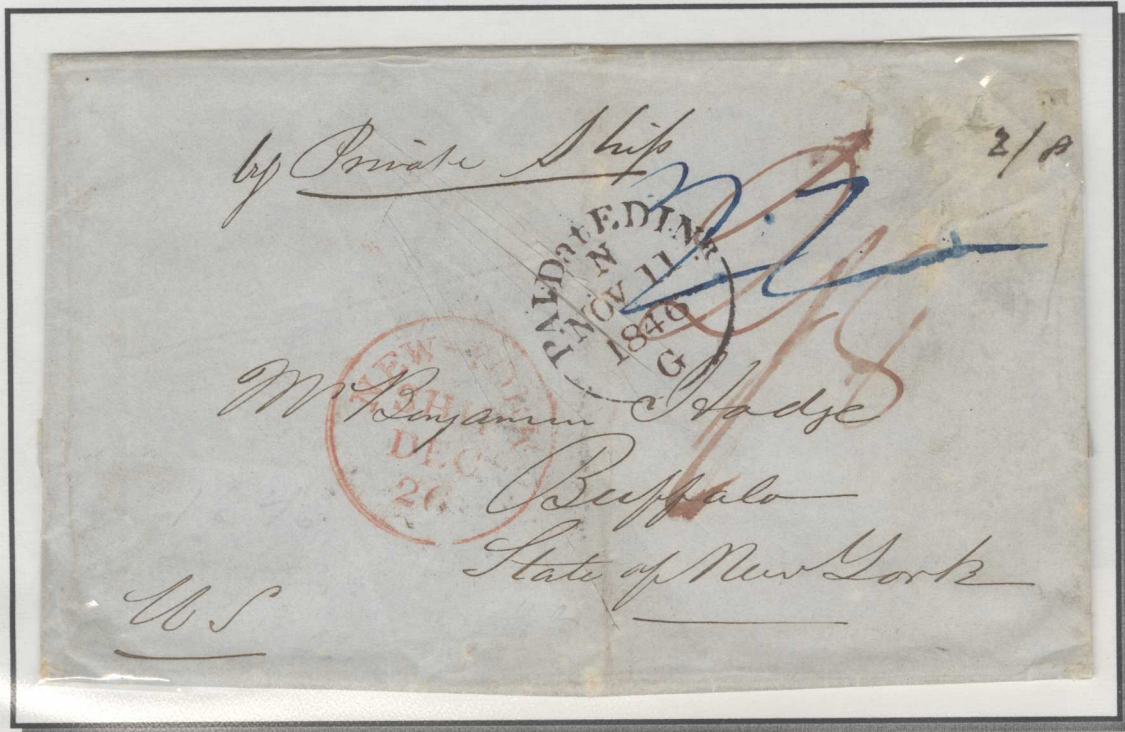 by Private Ship
2/8
PAID at EDINR
N
NOV 11
1846
G
NEW-YORK
SHIP
DEC
26
Mr Benjamin Hodge
Buffalo
State of New York
U S